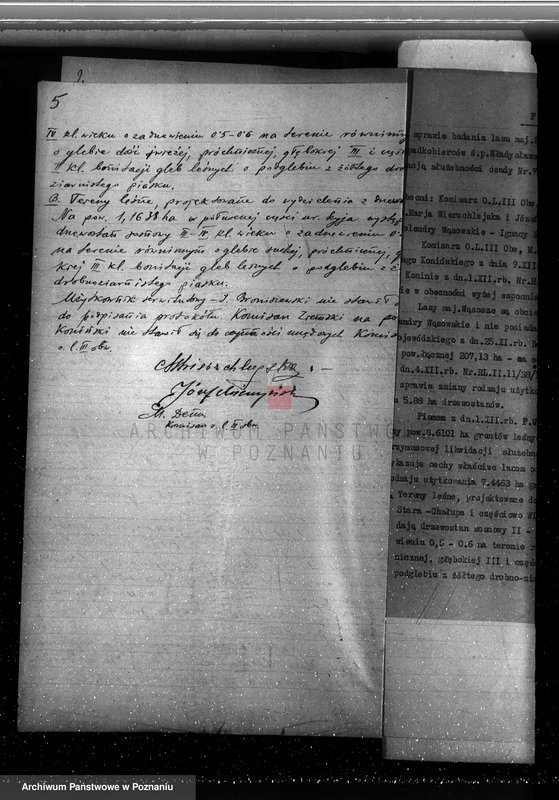 2.
5
IV kl. wieku o zadrzewieniu 0'5-0'6 na terenie równinnym
o glebie dość świeżej, próchnicznej, głębokiej III i częś
II kl. bonitacji gleb leśnych o podglebiu z żółtego drobno
ziarnistego piasku.
B. Tereny leśne, projektowane do wydzielenia z drzewo
Na pow. 1,1638 ha w północnej części ur. występ
drzewostan sosnowy II - IV kl. wieku o zadrzewieniu 0
na terenie równinnym o glebie suchej, próchnicznej, g
kiej III kl. bonitacji gleb leśnych o podglebiu z ż
drobnoziarnistego piasku.
Użytkownik serwitutowy - J. Broniszewski nie stawił s
do podpisania protokółu. Komisarz Ziemski na pow
Koniński nie stawił się do czynności urzędowych Komisarz
o. l. III obw.
Komisarz o. l. III obw.
ARCHIWUM PAŃSTWO
W POZNANIU
P
sprawie badania lasu maj.W
padkobierców ś.p.Władysława
acją służebności osady Nr.7
becni: Komisarz O.L.III Obw
Marja Wierzchlejska i Józef
olendry Wąsowskie - Ignacy B
Komisarz O.L.III Obw, M.
go Konińskiego z dnia 9.XII
Koninie z dn.1.XII.rb. Nr.R.
ie w obecności wyżej wspomnia
Lasy maj.Wąsosze są obcią
endry Wąsowskie i nie posiada
jewódzkiego z dn.25.XI.rb. N
pow.łącznej 207,13 ha - na o
dn.4.XII.rb. Nr.RL.II.11/38/
sprawie zmiany rodzaju użytko
a 5.88 ha drzewostanów.
Pismem z dn.1.XII.rb. P.W
y pow.8.6101 ha gruntów leśny
rzymusowej likwidacji służebno
ykazuje cechy właściwe lasom o
odzaju użytkowania 7.4463 ha g
. Tereny leśne, projektowane d
Stara -Chałupa i częściowo Wi
dają drzewostan sosnowy II -
wieniu 0,5 - 0.6 na terenie r
nicznej, głębokiej III i częśc
podglebiu z żółtego drobno-zia
Archiwum Państwowe w Poznaniu